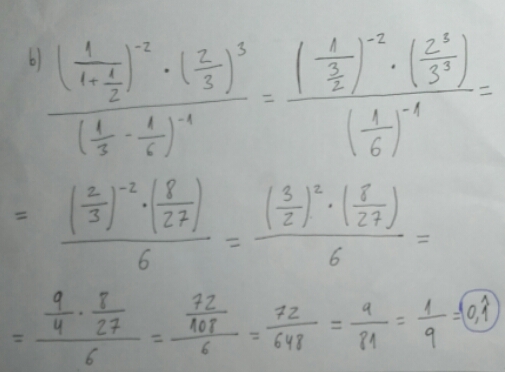 b) (1/(1+1/2))^-2 · (2/3)^3 / (1/3 - 1/6)^-1 = (1/(3/2))^-2 · (2^3/3^3) / (1/6)^-1 =
= (2/3)^-2 · (8/27) / 6 = (3/2)^2 · (8/27) / 6 =
= (9/4 · 8/27) / 6 = (72/108) / 6 = 72/648 = 9/81 = 1/9 = 0,1̂